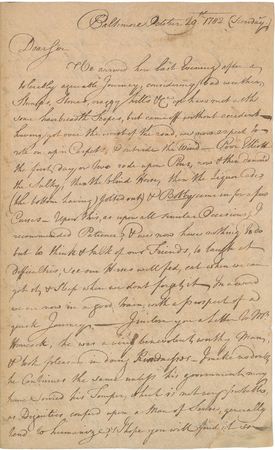 Baltimore October 29th 1782 (Sunday)
Dear Sir
We arrived here last Evening after a
tolerably agreeable Journey, considering bad weather,
Stumps, Stones, craggy hills &c. we have not with
some hairbreadth Scapes, but came off without accident
having got over the worst of the road, we now expect to
role on upon Carpets, & outride the Wind — Poor
the first day or two rode upon Pins, now & then damned
the Sulky, then the blind Horse, then the Liquor Case
(the bottom having jolted out) & Bobby came in for a few
Curses. Upon this, as upon all similar Occasions, I
recommended Patience, & we now have nothing to do
but to think & talk of our Friends, to laugh at
difficulties, see our Horses well fed, eat when we can
get it, & Sleep when we dont forget it. In a word
we are now in a good train, with a prospect of a
quick Journey — you a Letter to Mr
he was a civil benevolent worthy Man,
& took pleasure in doing Kindnesses. I make no doubt
he Continues the same unless his government may
have soured his Temper, which is not very probable,
as Dignities confer'd upon a Man of Sense, generally
tend to humanize, & I hope you will find it so —